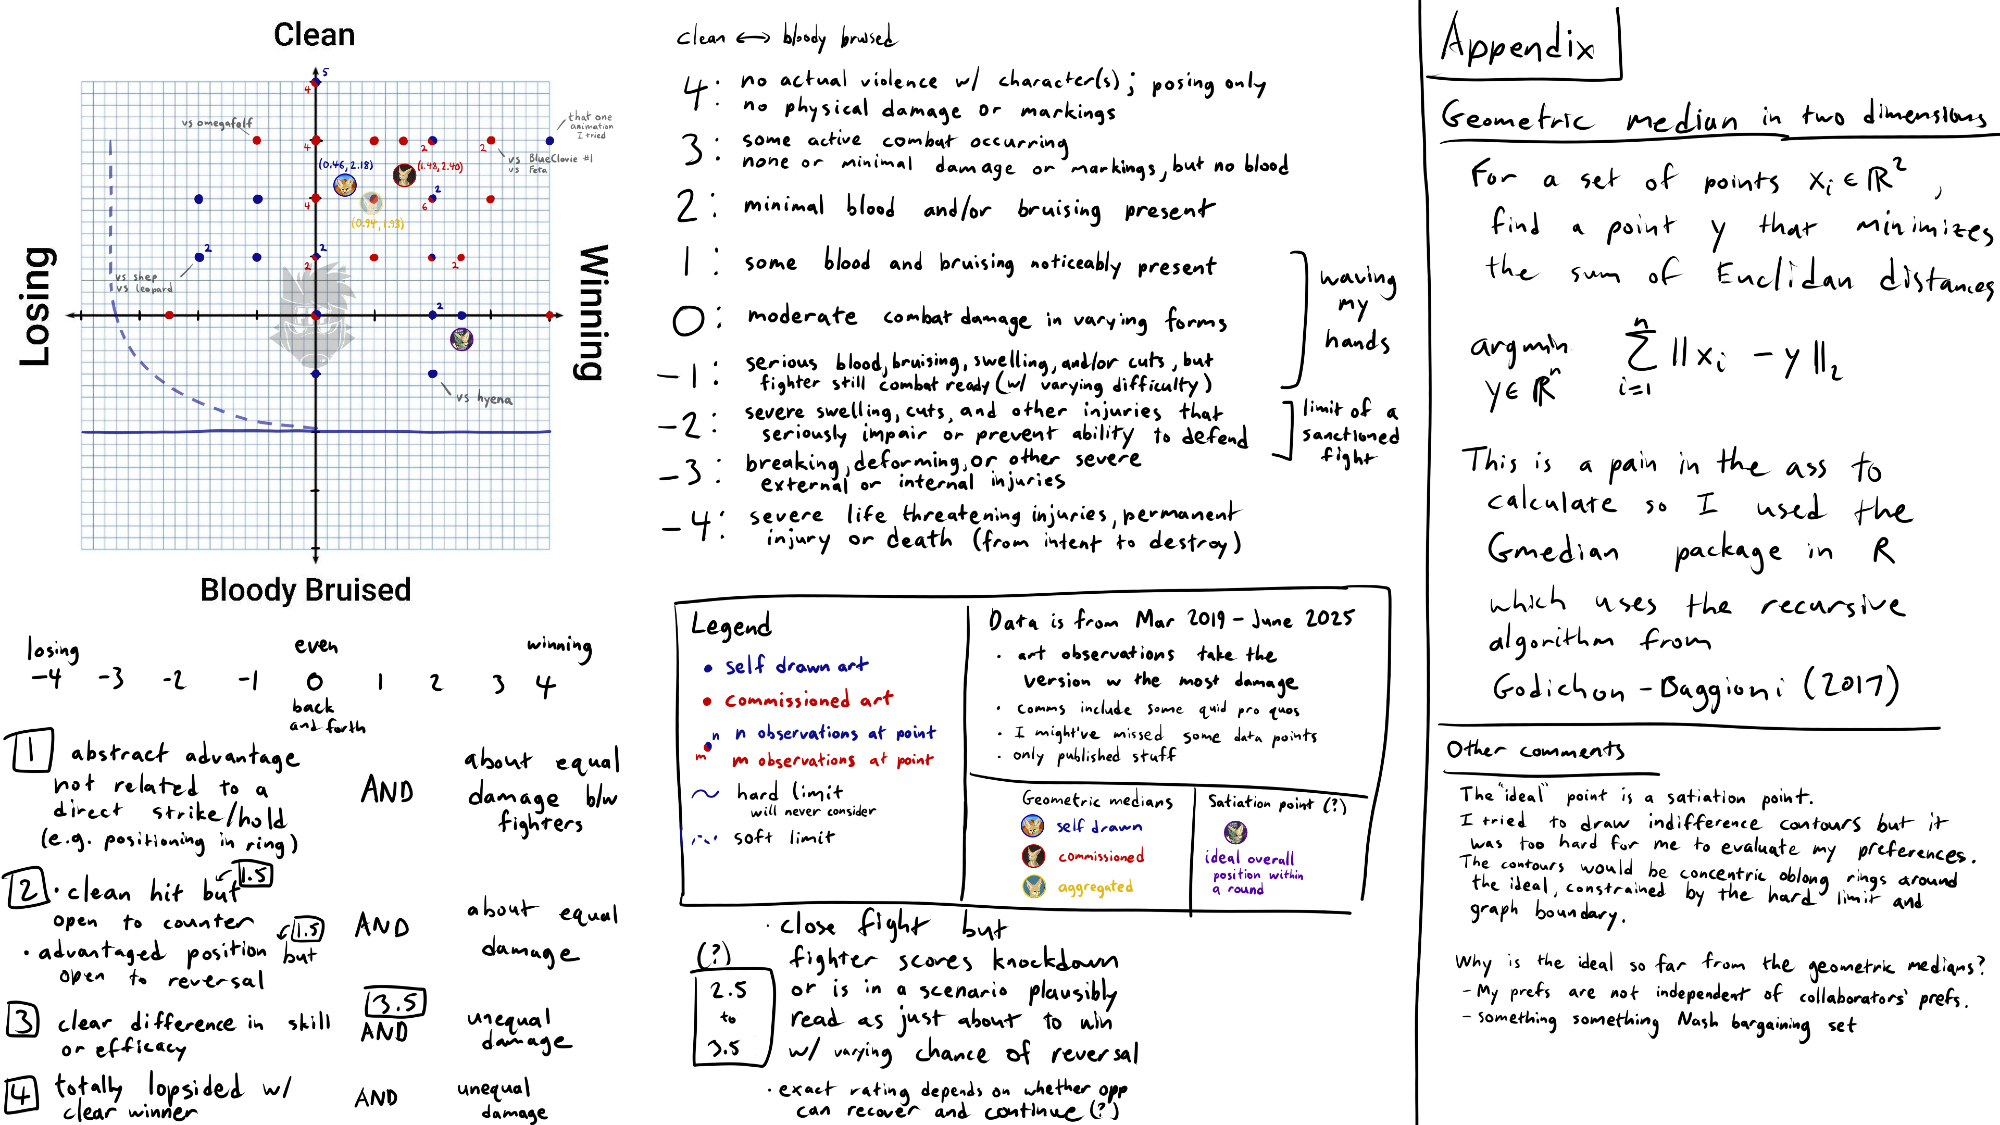 Clean
5
4
vs omegafolf
that one
animation
I tried
4
2
2
vs BlueClovie #1
vs Feta
(0.46, 2.18)
(1.48, 2.40)
4
2
6
(0.94, 1.93)
2
2
2
2
vs shep
vs leopard
2
Losing
Winning
vs hyena
Bloody Bruised
losing
even
winning
-4 -3 -2 -1 0 1 2 3 4
back
and forth
1 abstract advantage
not related to a
direct strike/hold
(e.g. positioning in ring)
AND
about equal
damage b/w
fighters
2 • clean hit but 1.5
open to counter
• advantaged position but 1.5
open to reversal
AND
about equal
damage
3 clear difference in skill
or efficacy
3.5
AND
unequal
damage
4 totally lopsided w/
clear winner
AND
unequal
damage
clean ↔ bloody bruised
4: no actual violence w/ character(s); posing only
no physical damage or markings
3: some active combat occurring
none or minimal damage or markings, but no blood
2: minimal blood and/or bruising present
1: some blood and bruising noticeably present
0: moderate combat damage in varying forms
-1: serious blood, bruising, swelling, and/or cuts, but
fighter still combat ready (w/ varying difficulty)
-2: severe swelling, cuts, and other injuries that
seriously impair or prevent ability to defend
-3: breaking, deforming, or other severe
external or internal injuries
-4: severe life threatening injuries, permanent
injury or death (from intent to destroy)
waving
my
hands
limit of a
sanctioned
fight
Legend
• self drawn art
• commissioned art
n n observations at point
m m observations at point
hard limit
will never consider
soft limit
Data is from Mar 2019 - June 2025
• art observations take the
version w the most damage
• comms include some quid pro quos
• I might've missed some data points
• only published stuff
Geometric medians
self drawn
commissioned
aggregated
Satiation point (?)
ideal overall
position within
a round
(?)
2.5
to
3.5
• close fight but
fighter scores knockdown
or is in a scenario plausibly
read as just about to win
w/ varying chance of reversal
• exact rating depends on whether opp
can recover and continue (?)
Appendix
Geometric median in two dimensions
For a set of points xᵢ ∈ ℝ²,
find a point y that minimizes
the sum of Euclidan distances
argmin
y∈ ℝⁿ
n
∑ ||xᵢ - y||₂
i=1
This is a pain in the ass to
calculate so I used the
Gmedian package in R
which uses the recursive
algorithm from
Godichon-Baggioni (2017)
Other comments
The "ideal" point is a satiation point.
I tried to draw indifference contours but it
was too hard for me to evaluate my preferences.
The contours would be concentric oblong rings around
the ideal, constrained by the hard limit and
graph boundary.
Why is the ideal so far from the geometric medians?
- My prefs are not independent of collaborators' prefs.
- something something Nash bargaining set